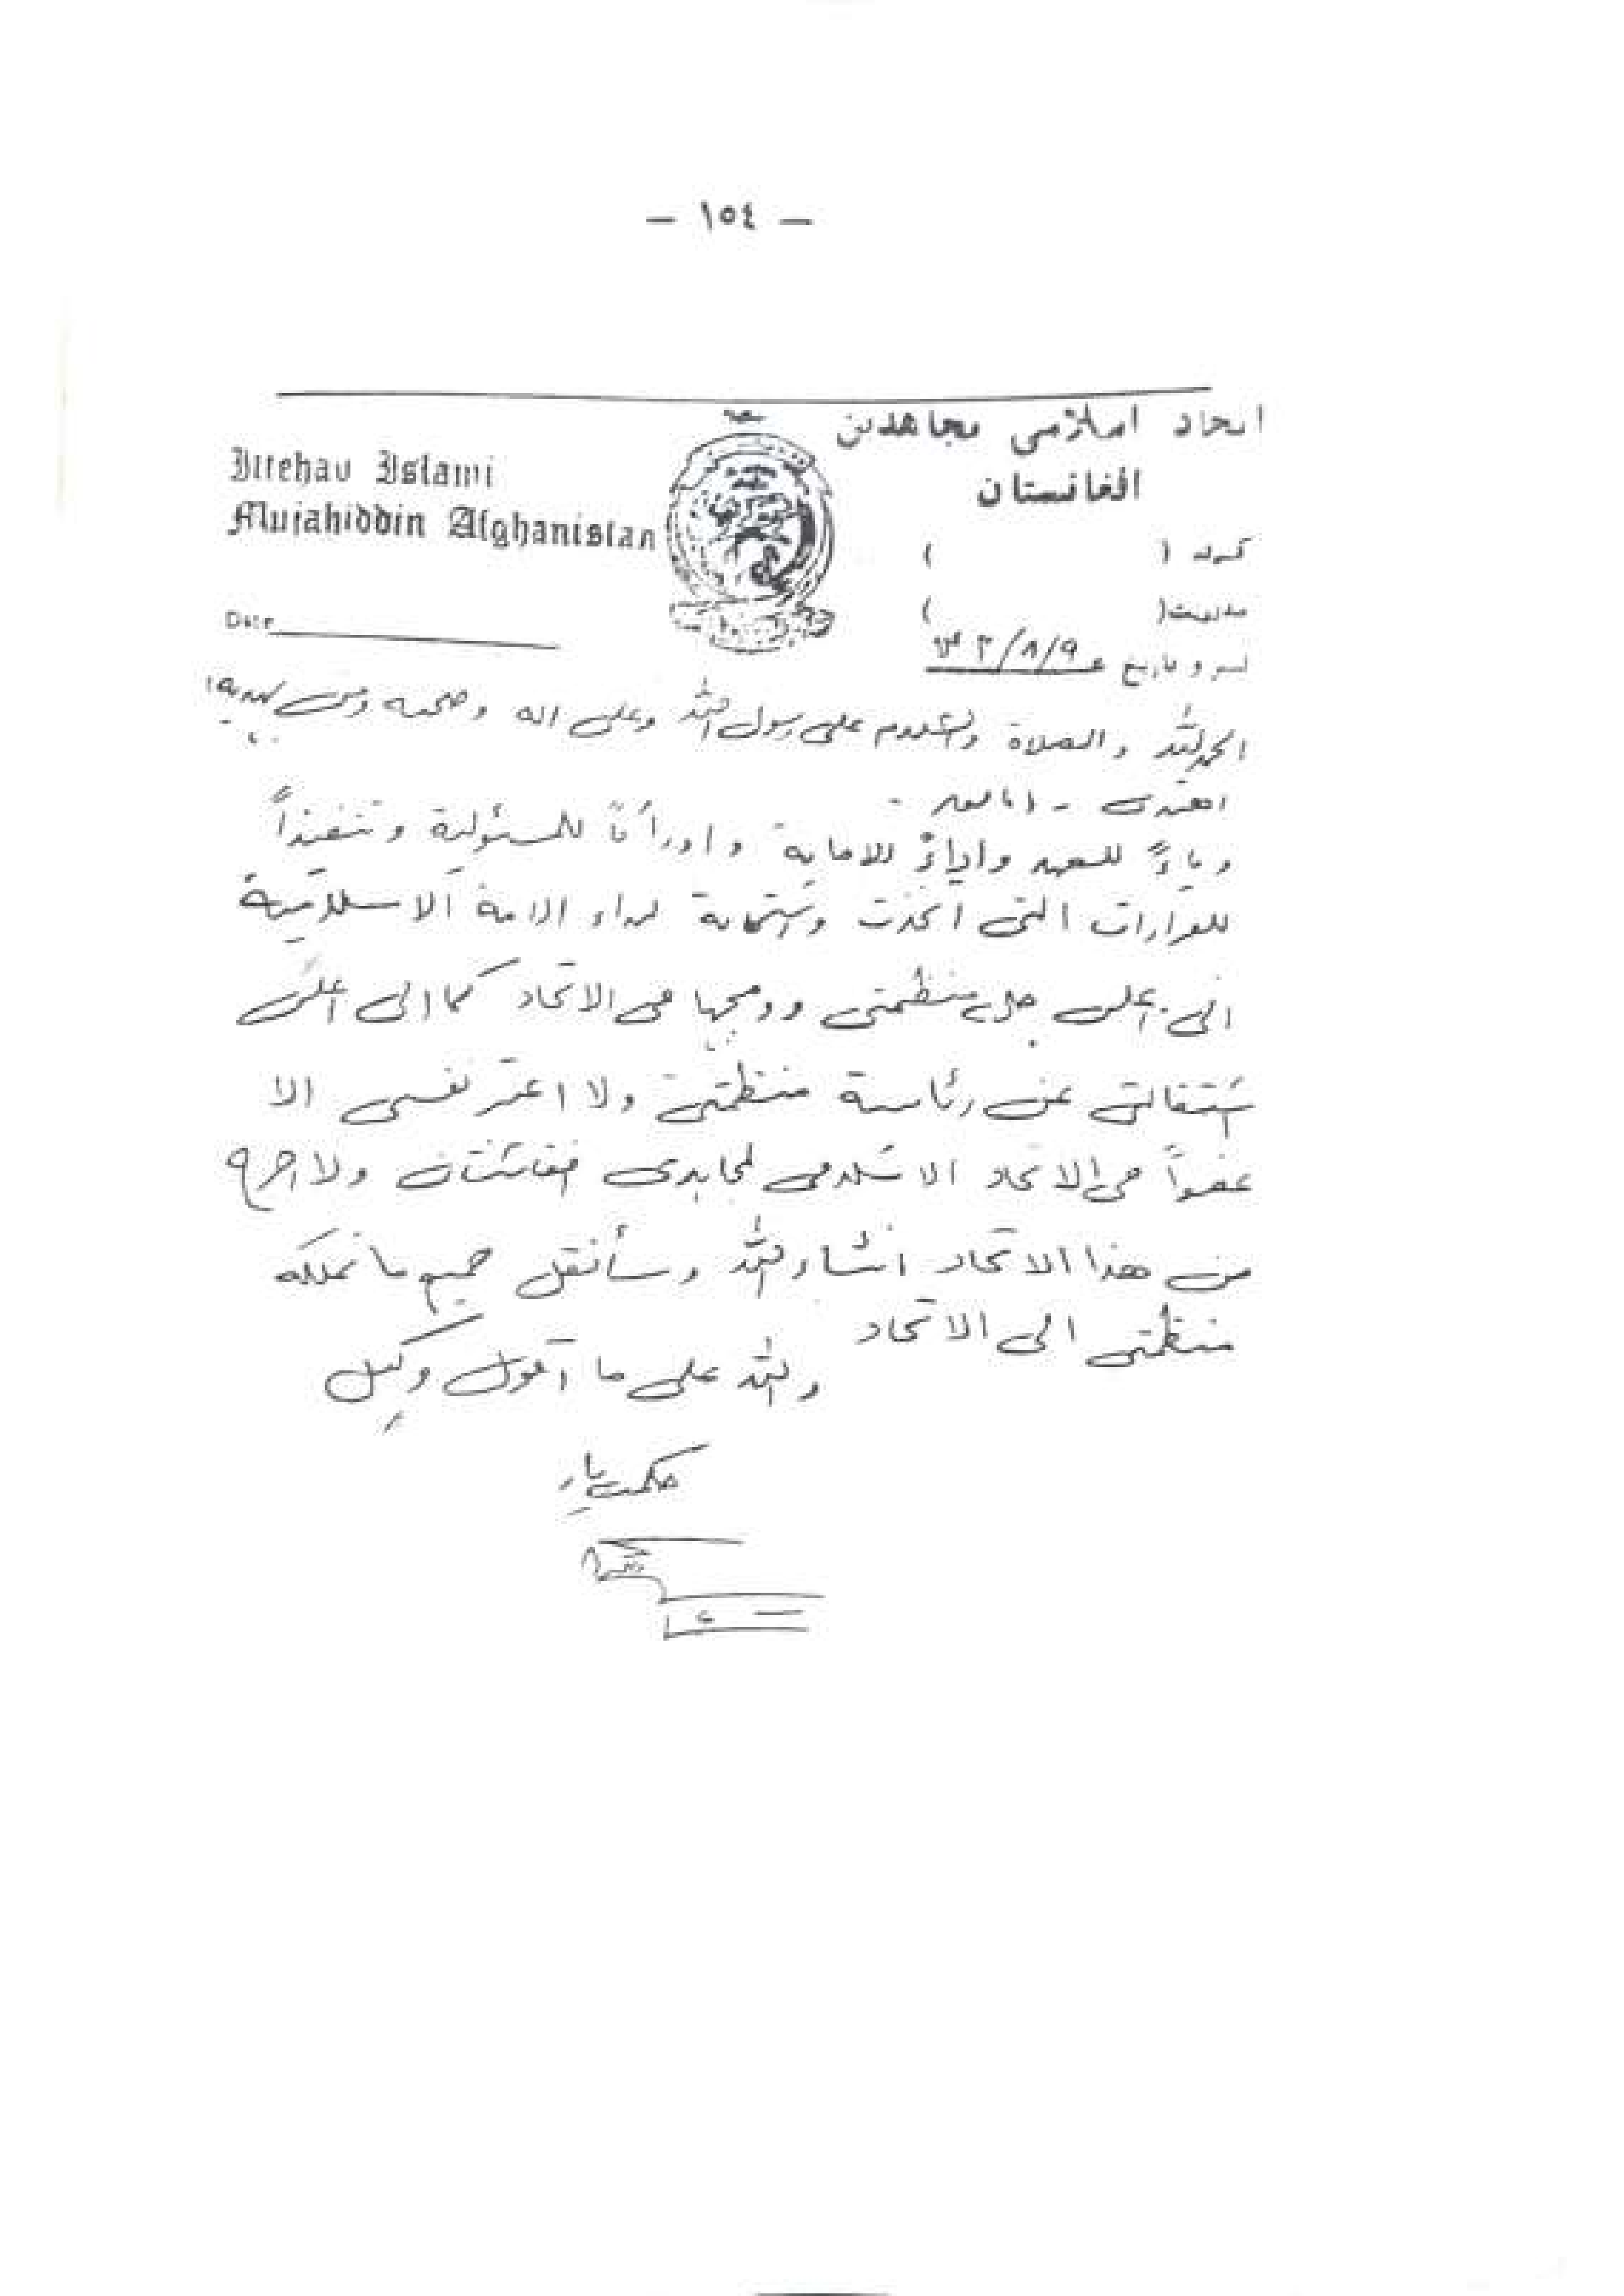 — ١٥٤ —
اتحاد اسلامي مجاهدين
افغانستان
Ittehad Islami
Mujahiddin Afghanistan
كميته (            )
مديريت(            )
نمبر و تاريخ
Date
الحمد لله والصلاة والسلام على رسول الله وعلى اله وصحبه ومن بهديه
اهتدى - اما بعد -
وفاءً للعهد واداءً للامانة وادراكاً للمسئولية وتنفيذاً
للقرارات التى اتخذت واستجابة لنداء الامة الاسلامية
انى اعلن حل منظمتى ودمجها فى الاتحاد كما انى اعلن
استقالتى عن رئاسة منظمتى ولا اعتبر نفسى الا
عضواً فى الاتحاد الاسلامى لمجاهدى افغانستان ولا اخرج
من هذا الاتحاد انشاء الله وسأنقل جميع ما تملكه
منظمتى الى الاتحاد
والله على ما اقول وكيل
حكمتيار